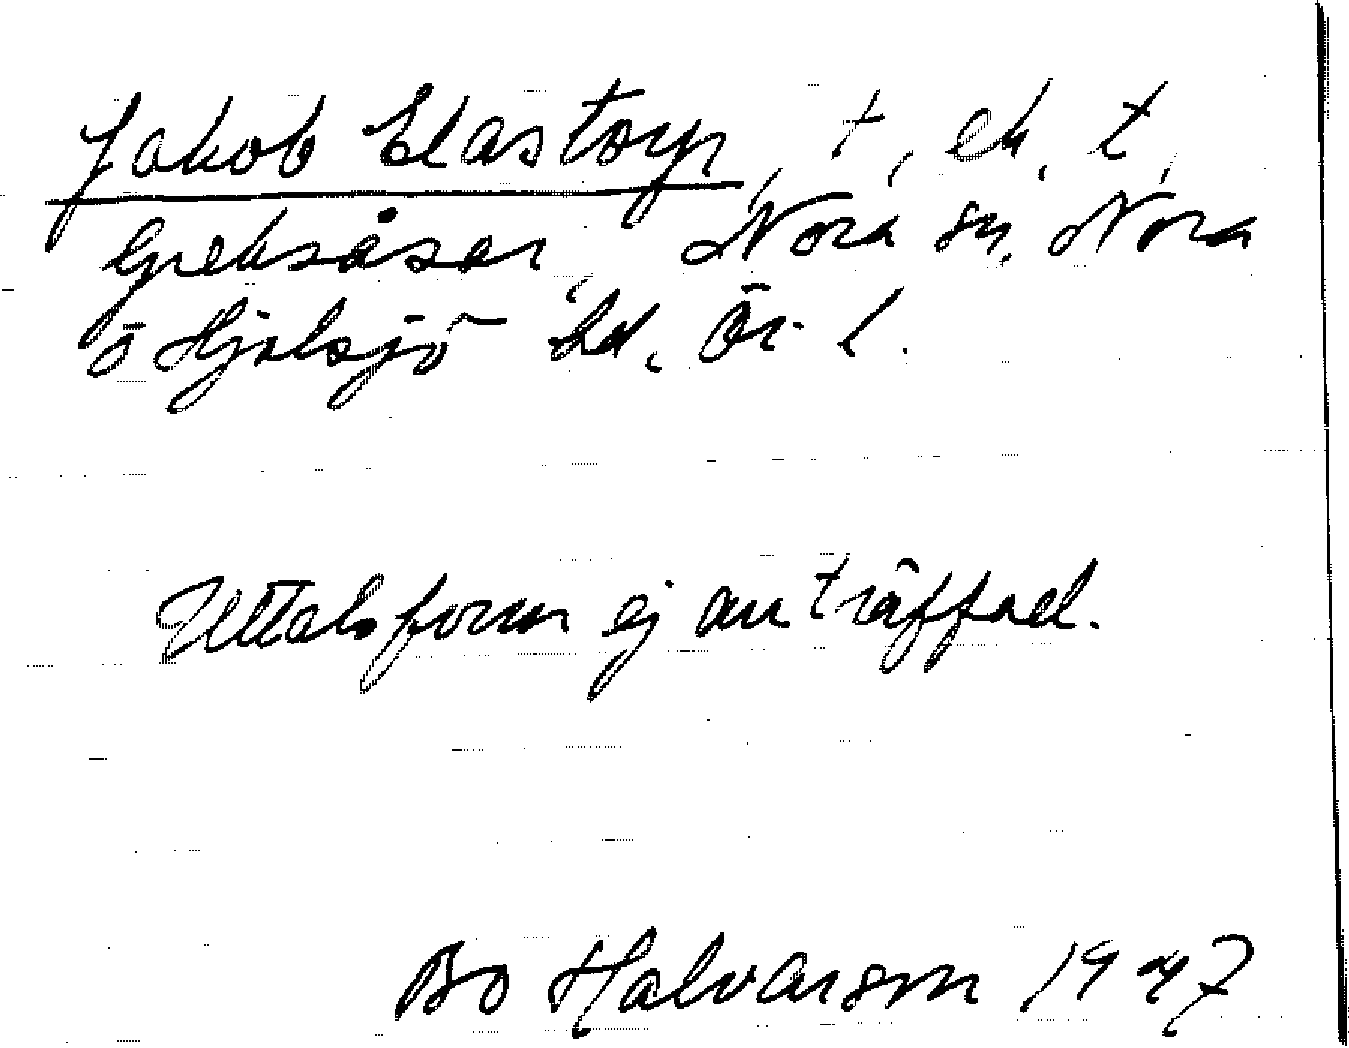 Jakob Elastorp, t, ek, t,
Greksåsar, Nora sn, Nora
o Hjulsjö hd, Ör. l.
Uttalsform ej anträffad.
Bo Halvarson 1947